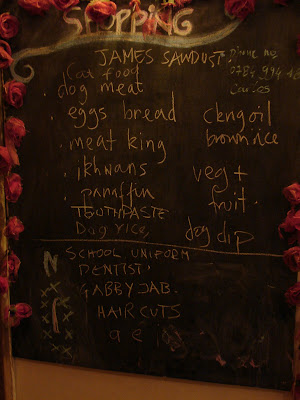 SHOPPING
JAMES SAWDUST.
Cat food
dog meat
eggs bread
meat king
ikhwans
paraffin
TOOTHPASTE
Dog rice
cleng oil
brown rice
veg +
fruit.
dog dip
SCHOOL UNIFORM
DENTIST.
GABBY JAB.
HAIR CUTS